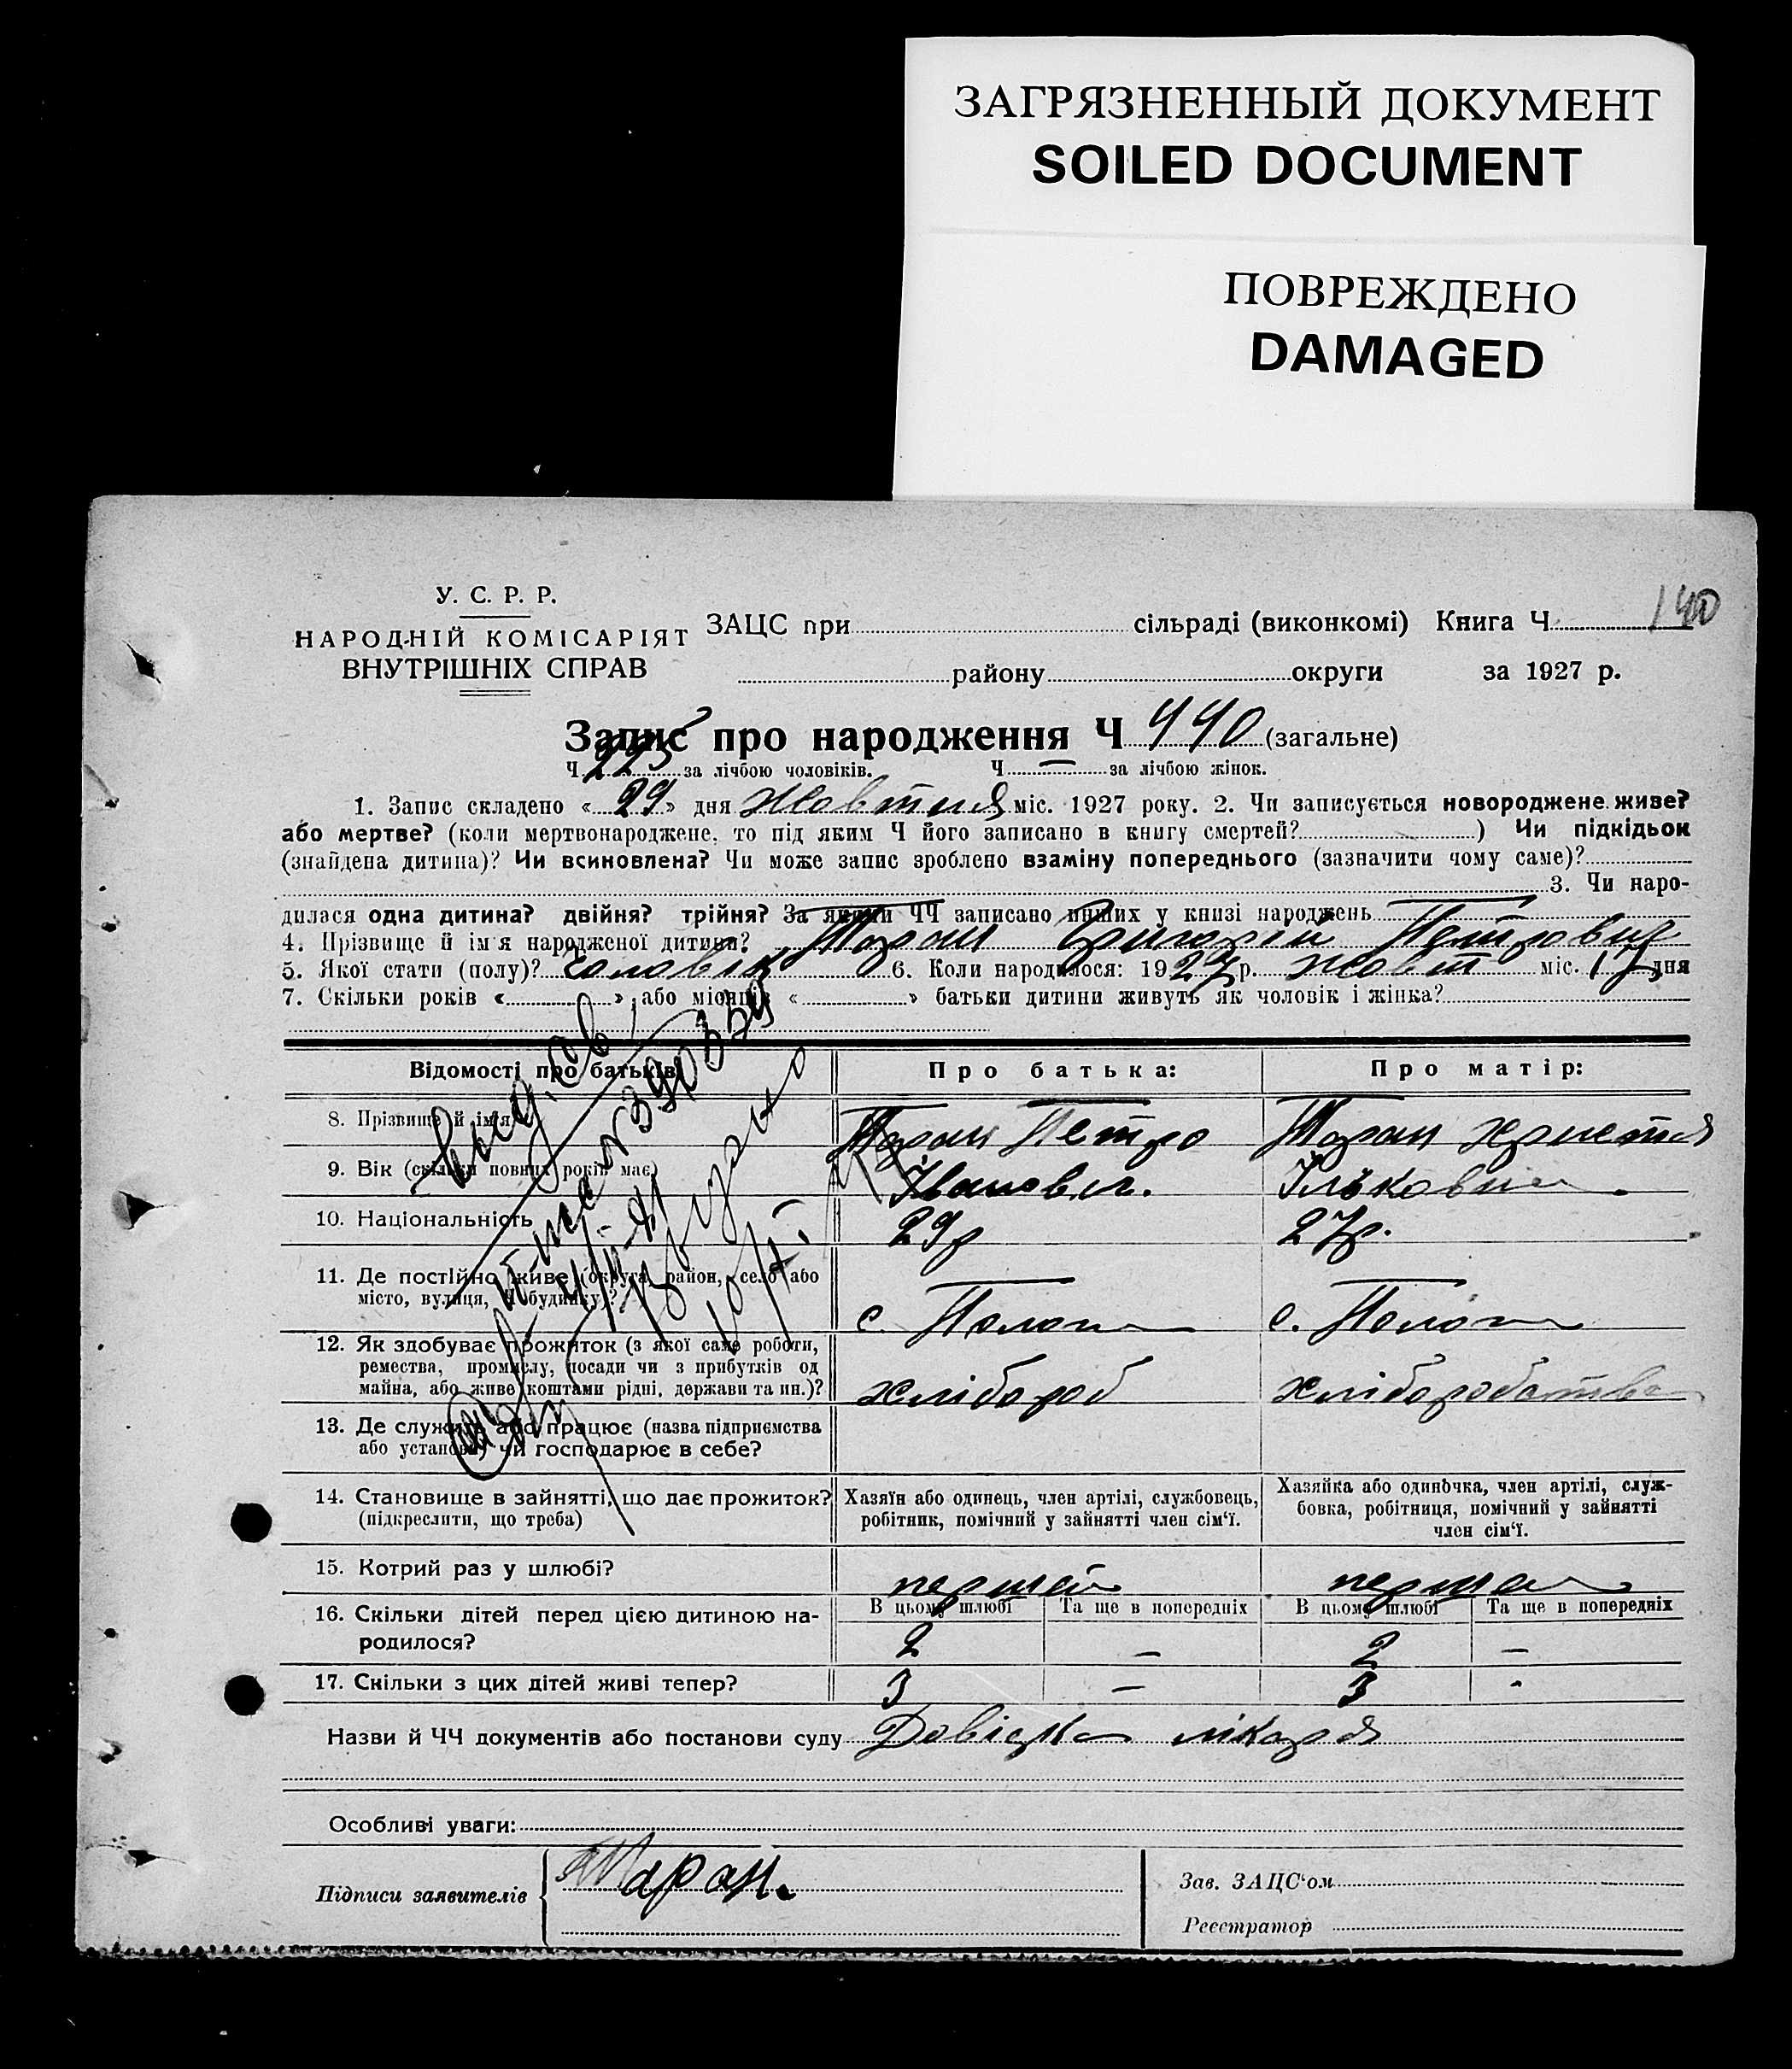 ЗАГРЯЗНЕННЫЙ ДОКУМЕНТ
SOILED DOCUMENT
ПОВРЕЖДЕНО
DAMAGED
140
У. С. Р. Р.
НАРОДНІЙ КОМІСАРІЯТ
ВНУТРІШНІХ СПРАВ
ЗАЦС при сільраді (виконкомі) Книга Ч.
району округи за 1927 р.
Запис про народження Ч 440 (загальне)
Ч 225 за лічбою чоловіків. Ч — за лічбою жінок.
1. Запис складено « 29 » дня Жовтня міс. 1927 року. 2. Чи записується новороджене живе?
або мертве? (коли мертвонароджене, то під яким Ч його записано в книгу смертей? ) Чи підкідьок
(знайдена дитина)? Чи всиновлена? Чи може запис зроблено взаміну попереднього (зазначити чому саме)?
3. Чи наро-
дилася одна дитина? двійня? трійня? За якими ЧЧ записано инших у книзі народжень
4. Прізвище й ім'я народженої дитини? Таран Григорій Петрович
5. Якої стати (полу)? Чоловік 6. Коли народилося: 1927 р. Жовт міс. 17 дня
7. Скільки років « », або місяців « » батьки дитини живуть як чоловік і жінка?
Відомості про батьків Про батька: Про матір:
8. Прізвище й ім'я Таран Петро Таран Христя
9. Вік (скільки повних років має) Іванов.ч. Ільковна
10. Національність 29р 27р.
11. Де постійно живе (округа, район, село або
місто, вулиця, Ч будинку)?
с. Пологи с. Пологи
12. Як здобуває прожиток (з якої саме роботи,
ремества, промислу, посади чи з прибутків од
майна, або живе коштами рідні, держави та ин.)?
хлібороб хліборобство
13. Де служить або працює (назва підприємства
або установи) чи господарює в себе?
14. Становище в зайнятті, що дає прожиток?
(підкреслити, що треба)
Хазяїн або одинець, член артілі, службовець,
робітник, помічний у зайнятті член сім'ї.
Хазяйка або одиночка, член артілі, служ-
бовка, робітниця, помічний у зайнятті
член сім'ї.
15. Котрий раз у шлюбі? перший перша
В цьому шлюбі Та ще в попередніх В цьому шлюбі Та ще в попередніх
16. Скільки дітей перед цією дитиною на-
родилося?
2 — 2 —
17. Скільки з цих дітей живі тепер? 3 — 3 -
Назви й ЧЧ документів або постанови суду Довідка лікаря
Особливі уваги:
Підписи заявителів Таран.
Зав. ЗАЦС'ом
Реєстратор